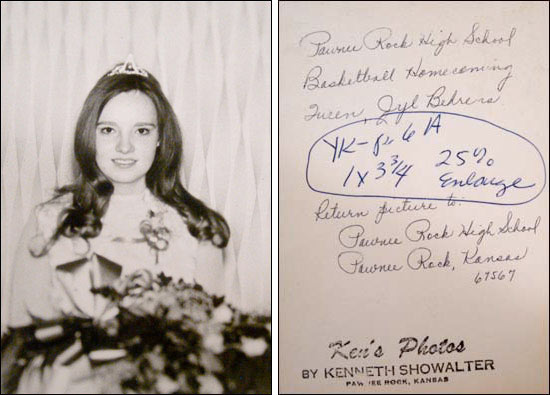 Pawnee Rock High School
Basketball Homecoming
Queen, Jyl Behrens
YK-pg 6 A
1 x 3 3/4 25%
Enlarge
Return picture to:
Pawnee Rock High School
Pawnee Rock, Kansas
67567
Ken's Photos
BY KENNETH SHOWALTER
PAWNEE ROCK, KANSAS